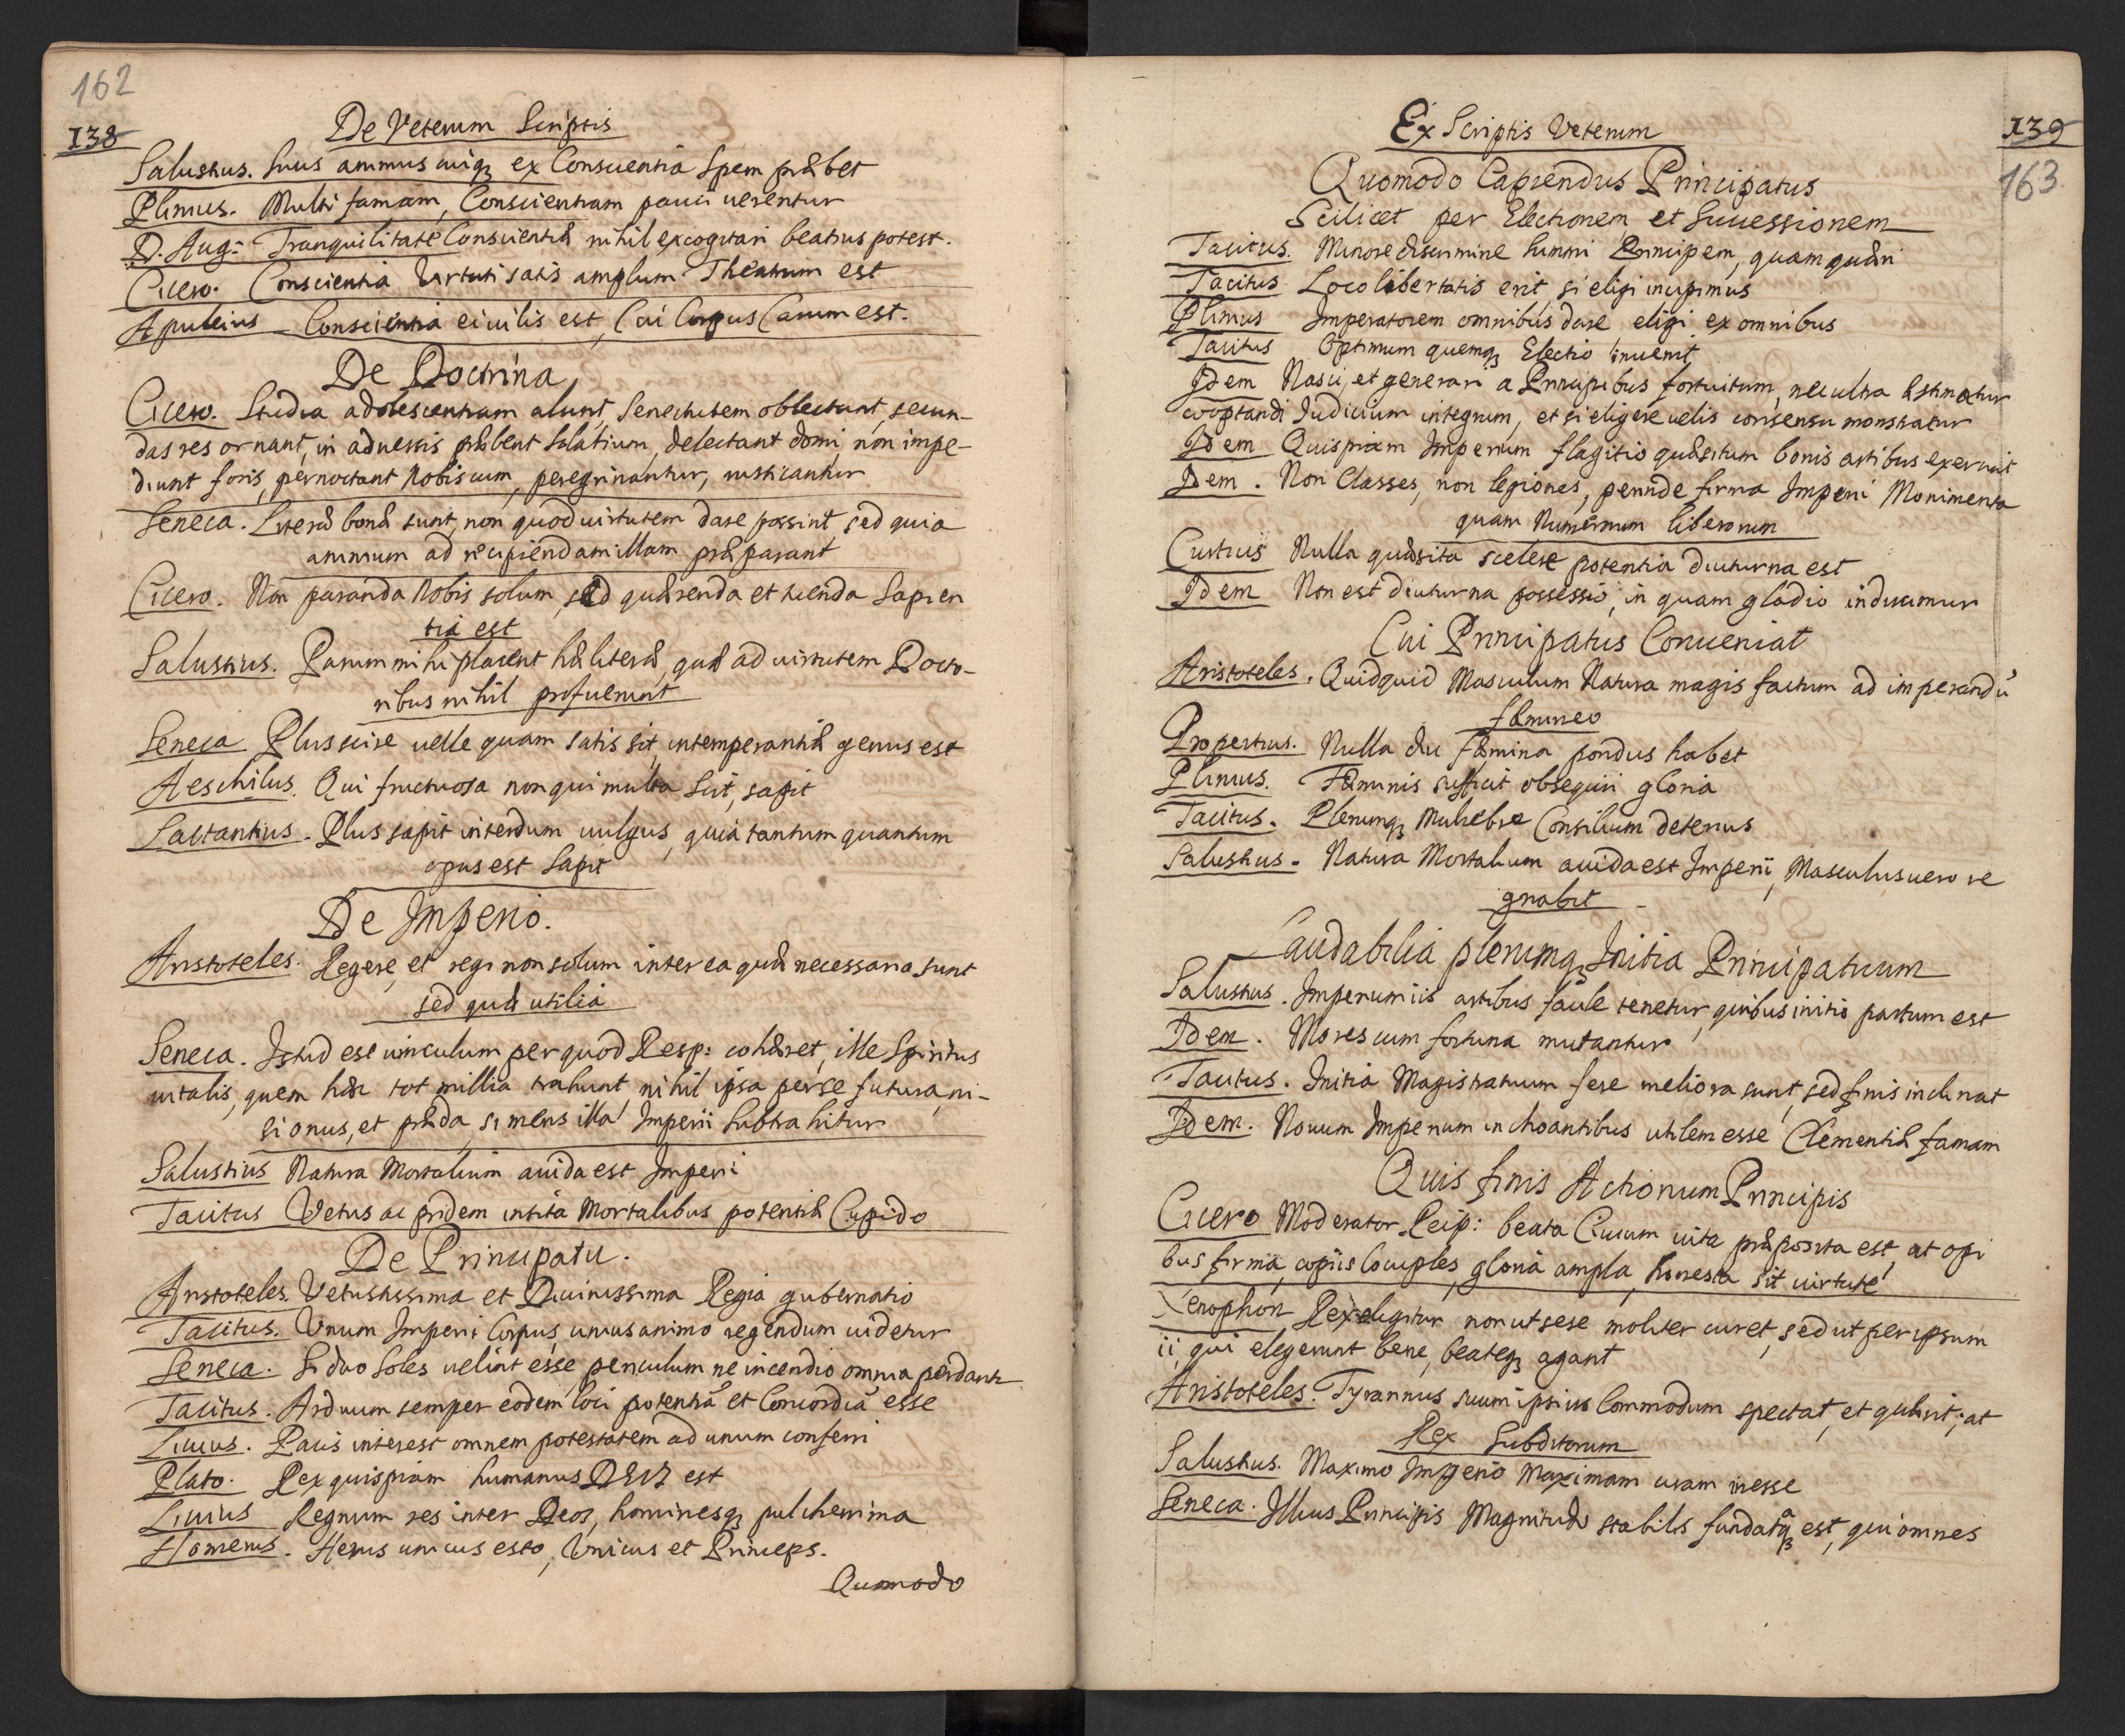 162
138
De Veterum Scriptis
Salustius. Suus animus cuiq; ex Conscientia Spem præbet
Plinius. Multi famam, Conscientiam pauci uerentur
D. Aug: Tranquilitate Conscientiæ nihil excogitari beatius potest.
Cicero. Conscientia Virtuti satis amplum Theatrum est
Apuleius Conscientia ei uilis est, Cui Corpus Carum est.
De Doctrina
Cicero. Studia adolescentiam alunt, Senectutem oblectant, secun-
das res ornant, in aduersis præbent Solatium, delectant domi, non impe-
diunt foris, pernoctant Nobiscum, peregrinantur, rusticantur
Seneca. Literæ bonæ sunt, non quod uirtutem dare possint sed quia
animum ad recipiendam illam præparant
Cicero. Non paranda Nobis solum, sed quærenda et tuenda Sapien
tia est
Salustius. Parum mihi placent hæ literæ, quæ ad uirtutem Docto-
ribus nihil profuerunt
Seneca Plus scire uelle quam satis sit, intemperantiæ genus est
Aeschilus. Qui fructuosa non qui multa Scit, sapit
Lactantius. Plus sapit interdum uulgus, quia tantum quantum
opus est Sapit
De Imperio.
Aristoteles. Regere, et regi non solum inter ea quæ necessaria sunt
sed quæ utilia
Seneca. Istud est uinculum per quod Resp: cohæret, ille Spiritus
uitalis, quem hæc tot millia trahunt, nihil ipsa per se futura, ni-
si onus, et præda, si mens illa Imperii Subtrahitur
Salustius Natura Mortalium auida est Imperi
Tacitus Vetus ac pridem insita Mortalibus potentiæ Cupido
De Principatu.
Aristoteles. Vetustissima et Diuinissima Regia gubernatio
Tacitus. Vnum Imperi Corpus unius animo regendum uidetur
Seneca. Si duo Soles uelint esse, periculum ne incendio omnia perdant
Tacitus. Arduum semper eodem loci potentiã et Concordiã esse
Liuius. Pacis interest omnem potestatem ad unum conferri
Plato. Rex quispiam humanus DEUS est
Liuius Regnum res inter Deos, hominesq; pulcherrima
Homerus. Herus unicus esto, Vnicus et Princeps.
Quomodo
Ex Scriptis Veterum
139
163
Quomodo Capiendus Principatus
Scilicet per Electionem, et Successionem
Tacitus. Minore discrimine Summi Principem, quam quæri
Tacitus Loco libertatis erit, si eligi incipimus
Plinius Imperatorem omnibus dare eligi ex omnibus
Tacitus Optimum quemq; Electio inuenit
Idem Nasci, et generari a Principibus fortuitum, nec ultra æstimatur
cooptandi Iudicium integrum, et si eligere uelis consensu monstratur
Idem Quispiam Imperium flagitio quæsitum bonis artibus exercuit
Idem. Non Classes, non legiones, perinde firma Imperi Monimenta
quam Numerum liberorum
Curtius Nulla quæsita scelere potentia diuturna est
Idem Non est diuturna possessio, in quam gladio inducimur
Cui Principatus Conueniat
Aristoteles. Quidquid Masculum Natura magis factum ad imperandũ
fæmineo
Propertius. Nulla diu fæmina pondus habet
Plinius. Fæminis sufficit obsequii gloria
Tacitus. Plerumq; Muliebre Consilium deterius
Salustius. Natura Mortalium auida est Imperii, Masculus uero re
gnabit
Laudabilia plerumq; Initia Principatuum
Salustius. Imperium iis artibus facile tenetur, quibus initio partum est
Idem. Mores cum fortuna mutantur
Tacitus. Initia Magistratuum fere meliora sunt, sed finis inclinat
Idem. Nouum Imperium inchoantibus utilem esse Clementiæ famam
Quis finis Actionum Principis
Cicero Moderator Reip: beata Ciuium uita præposita est, ut opi
bus firma, copiis locuples, gloria ampla, honesta sit uirtute
Xenophon Rex eligitur non ut sese moliter curet, sed ut per ipsum
ii, qui elegerunt bene, beateq; agant
Aristoteles. Tyrannus suum ipsius Commodum spectat, et quærit; at
Rex Subditorum
Salustius. Maximo Imperio Maximam curam inesse
Seneca. Illius Principis Magnitudo stabilis fundataq; est, qui omnes